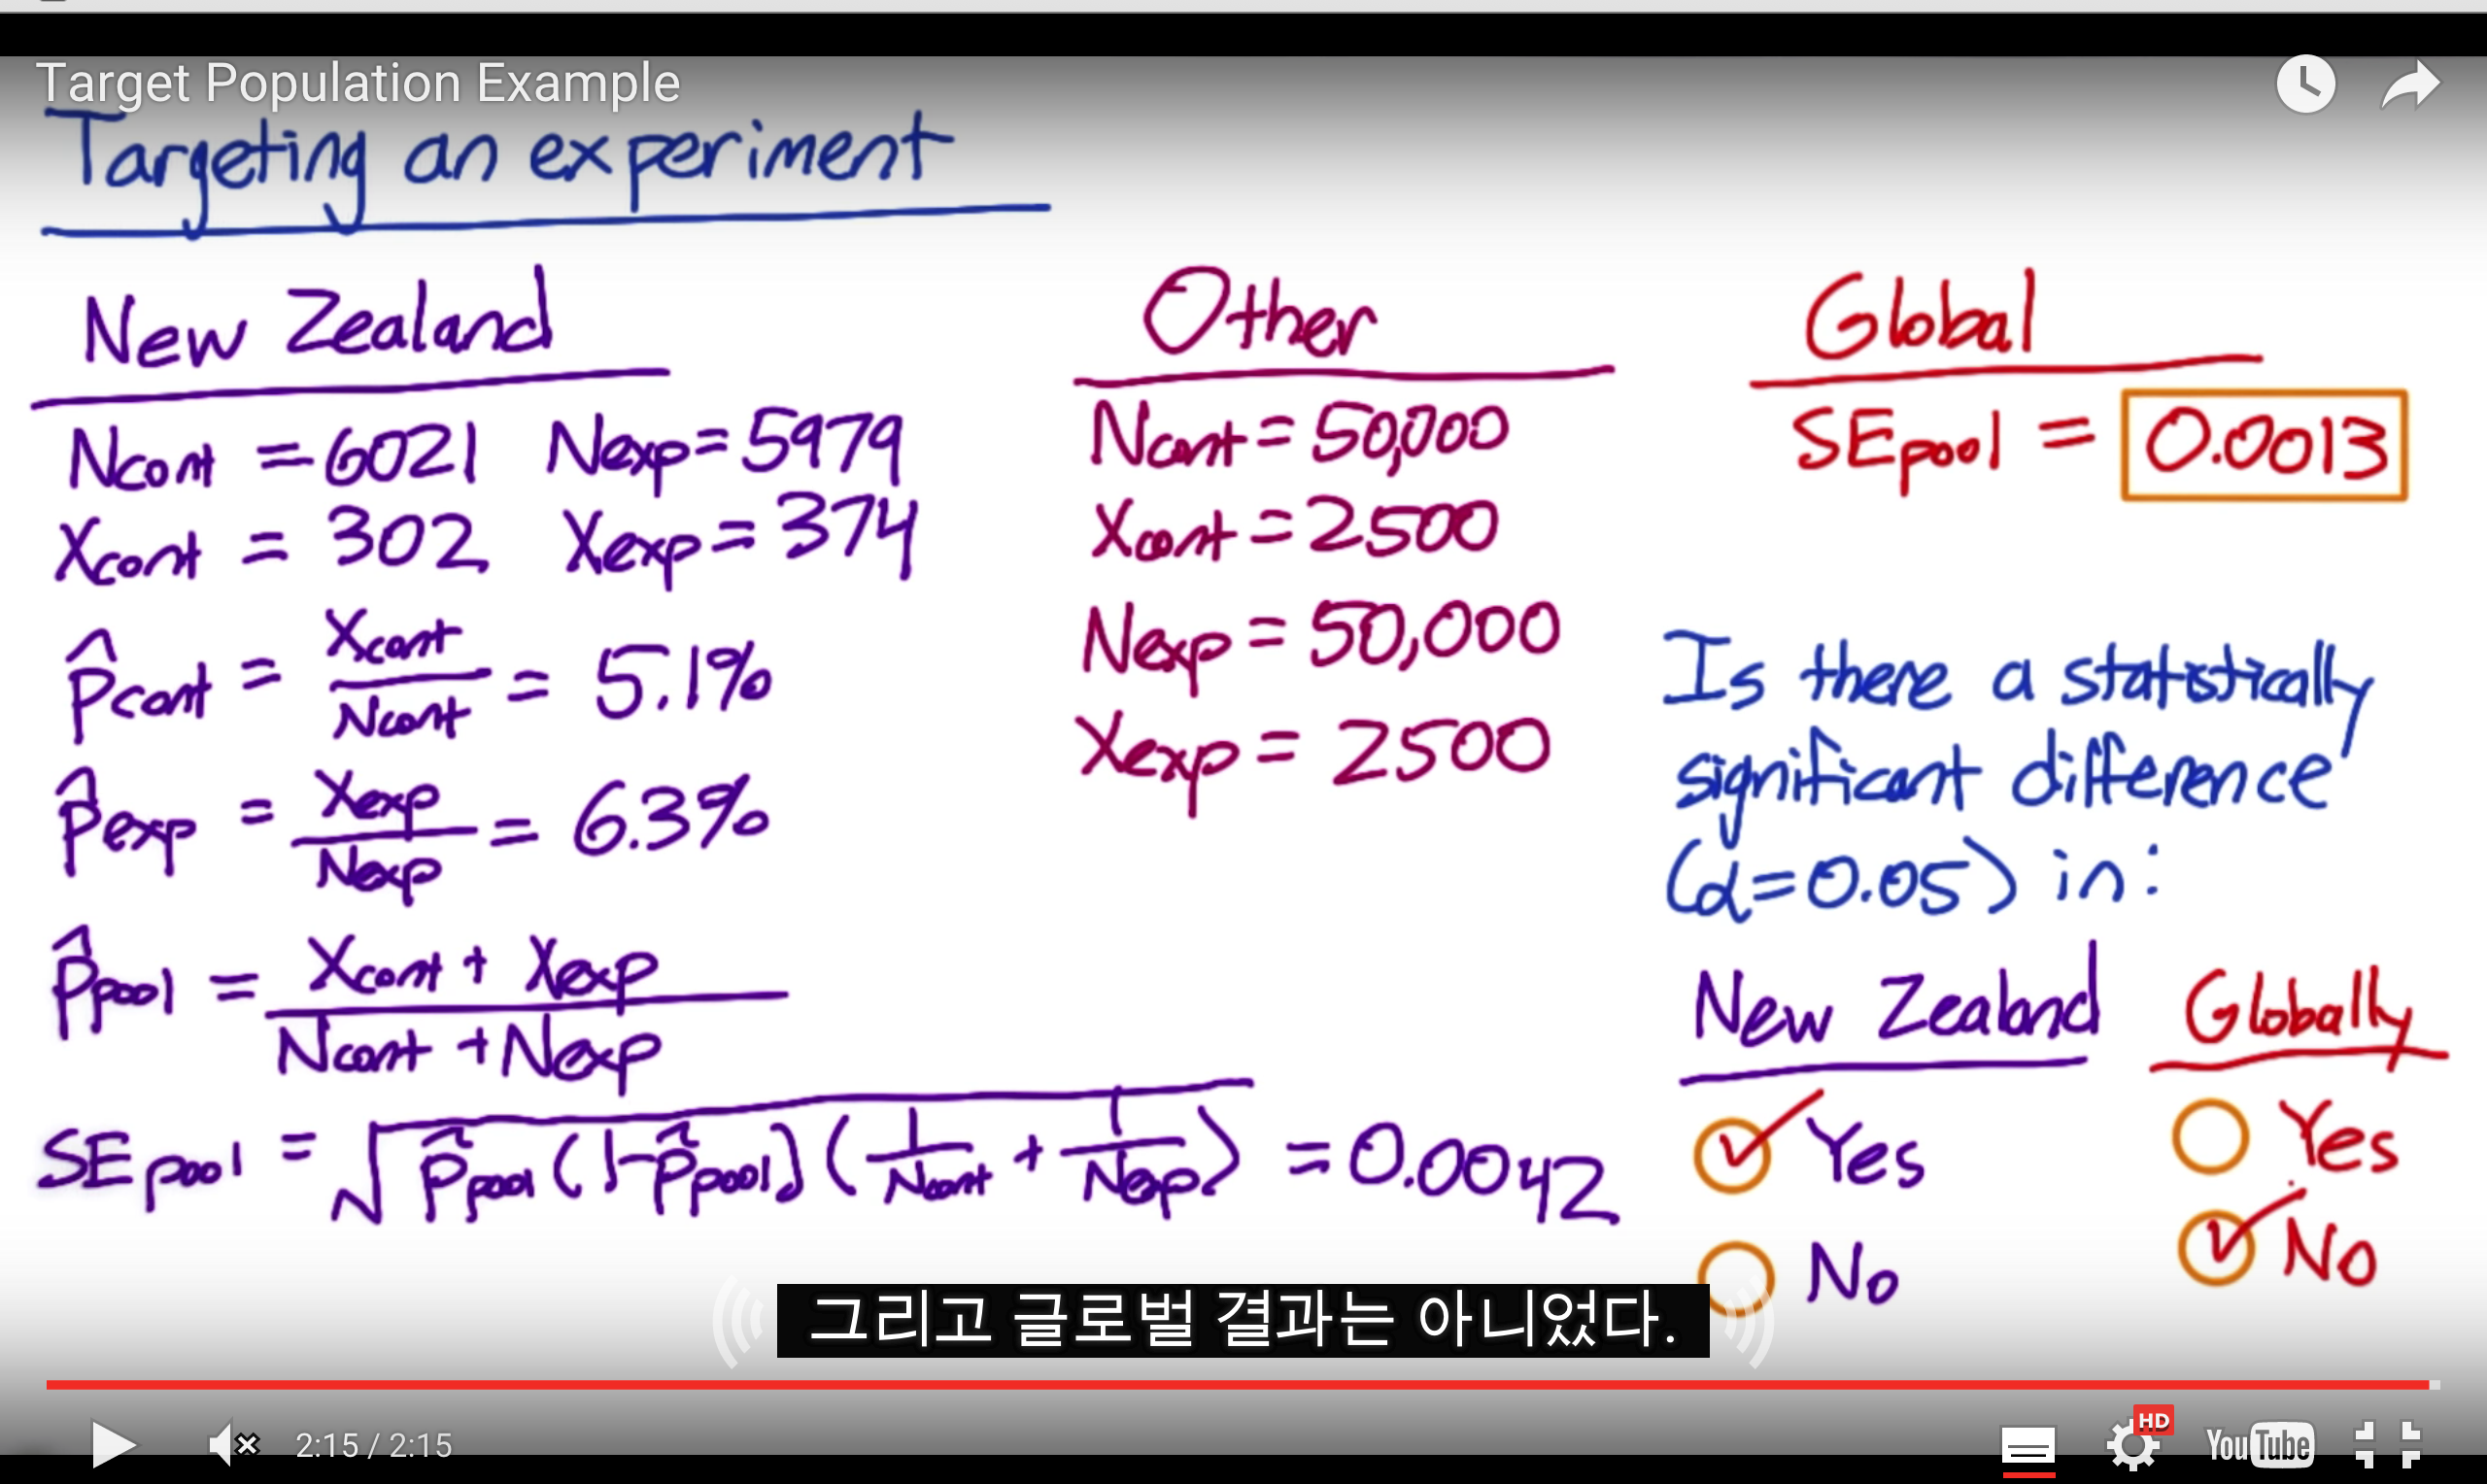 Target Population Example
Targeting an experiment
New Zealand
Ncont = 6021 Nexp = 5979
Xcont = 302 Xexp = 374
p̂cont = Xcont / Ncont = 5.1%
p̂exp = Xexp / Nexp = 6.3%
p̂pool = Xcont + Xexp / Ncont + Nexp
SEpool = √p̂pool (1-p̂pool) (1/Ncont + 1/Nexp) = 0.0042
Other
Ncont = 50,000
Xcont = 2500
Nexp = 50,000
Xexp = 2500
Global
SEpool = 0.0013
Is there a statistically
significant difference
(α=0.05) in:
New Zealand Globally
Yes Yes
No No
그리고 글로벌 결과는 아니었다.
2:15 / 2:15
HD
YouTube